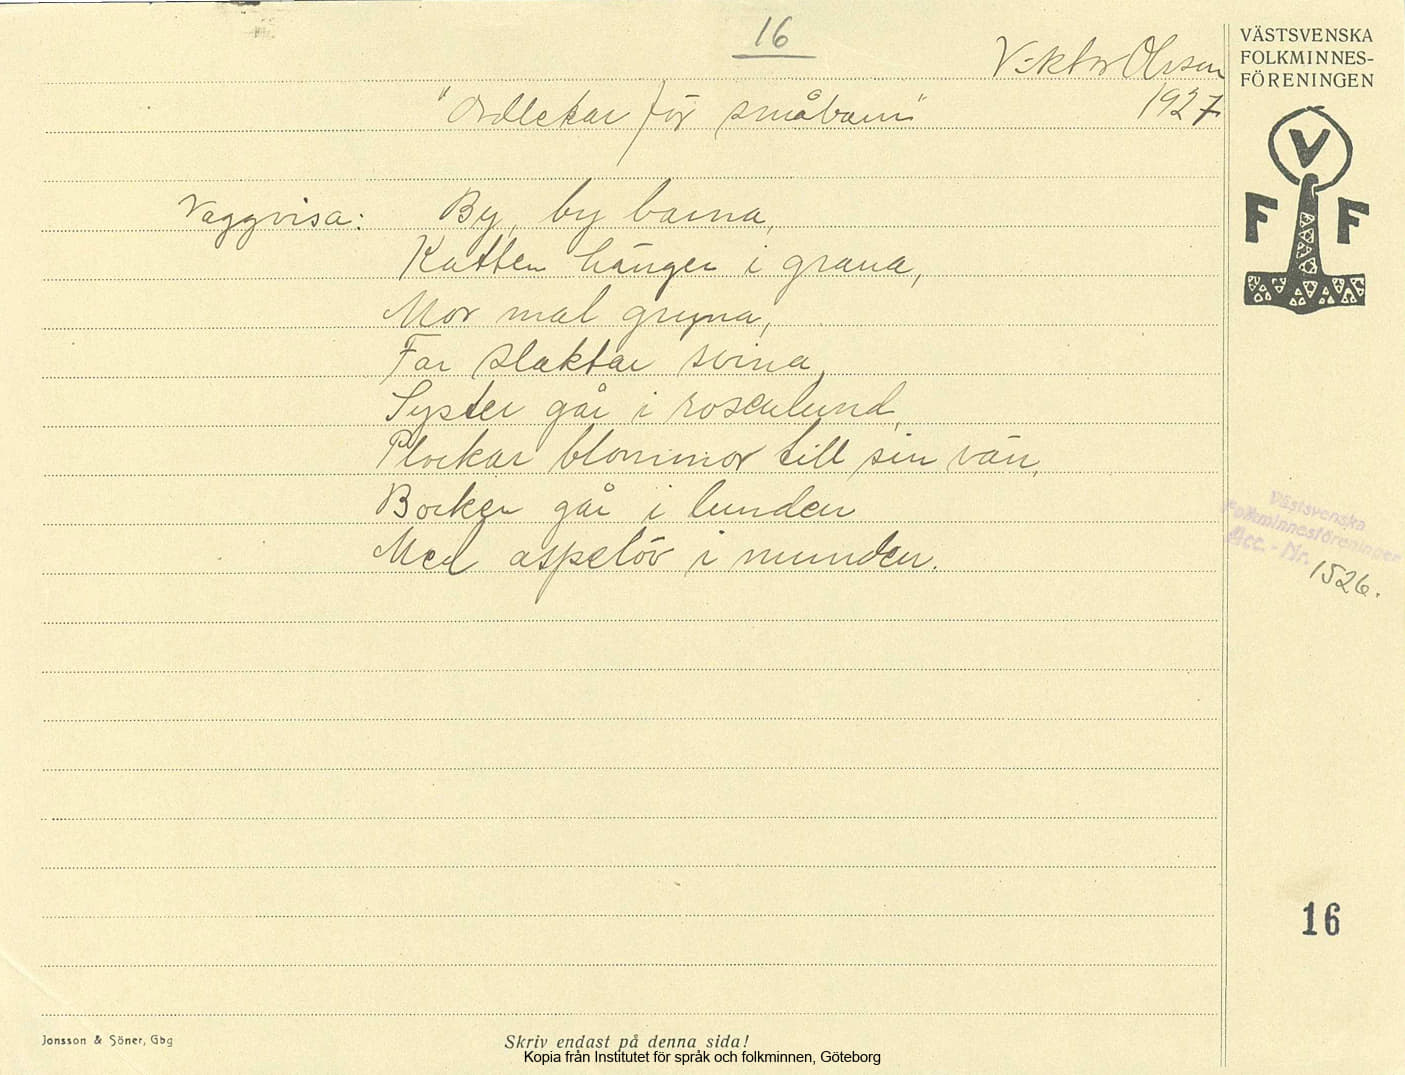 16
Viktor Olsson
1927
"Ordlekar för småbarn"
Vaggvisa: By, by barna,
Katten hänger i grana,
Mor mal gryna,
Far slaktar svina,
Syster går i rosenlund,
Plockar blommor till sin vän,
Bocken går i lunden
Med aspelöv i munden.
VÄSTSVENSKA
FOLKMINNES-
FÖRENINGEN
V
F F
Västsvenska
Folkminnesföreningen
Acc. - Nr. 1526.
16
Jonsson & Söner, Gbg
Skriv endast på denna sida!
Kopia från Institutet för språk och folkminnen, Göteborg